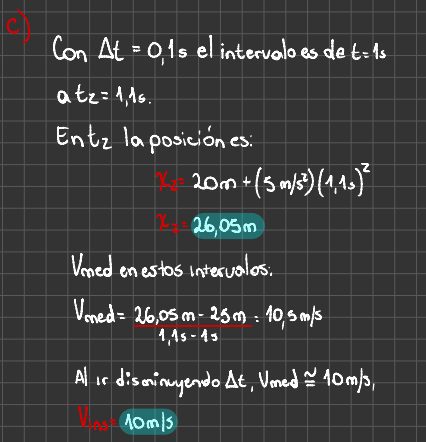 c)
Con Δt = 0,1s el intervalo es de t=1s
a t2 = 1,1s.
En t2 la posición es:
x2= 20m + (5 m/s²)(1,1s)²
x2= 26,05m
Vmed en estos intervalos.
Vmed= 26,05m - 25m / 1,1s - 1s = 10,5m/s
Al ir disminuyendo Δt, Vmed ≅ 10m/s,
Vins= 10m/s